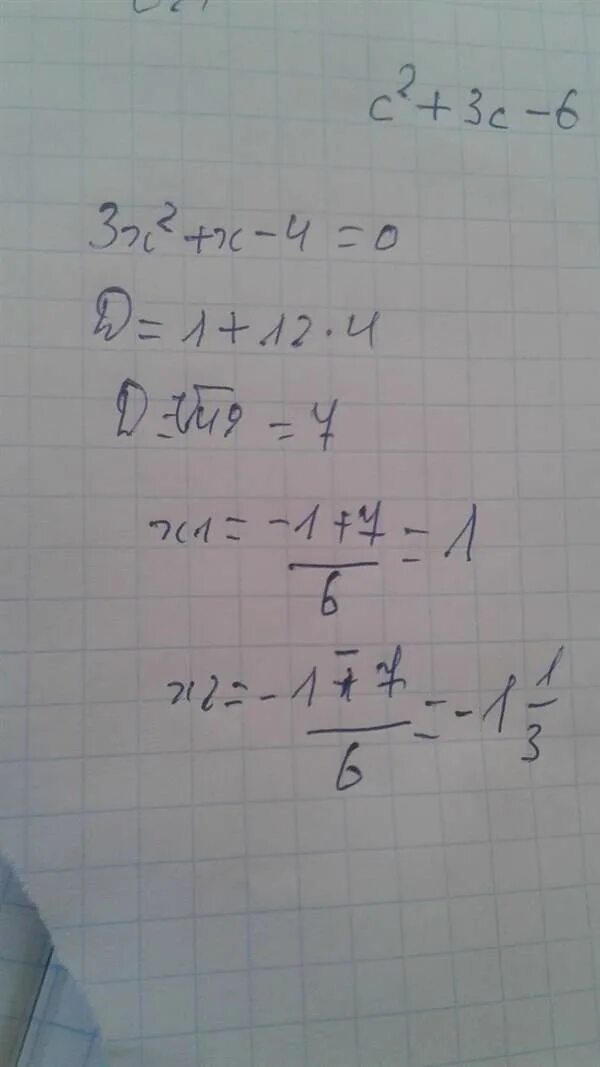 c² + 3c - 6
3x² + x - 4 = 0
D = 1 + 12 · 4
D = √49 = 7
x1 = (-1 + 7)/6 = 1
x2 = (-1 - 7)/6 = -1 1/3